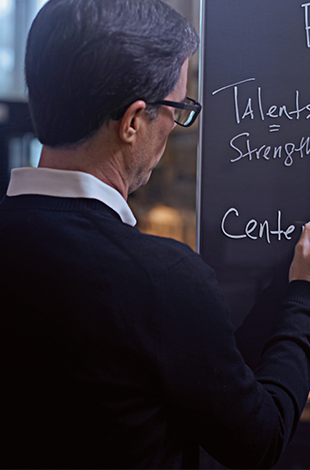 Talents
=
Strength
Cente